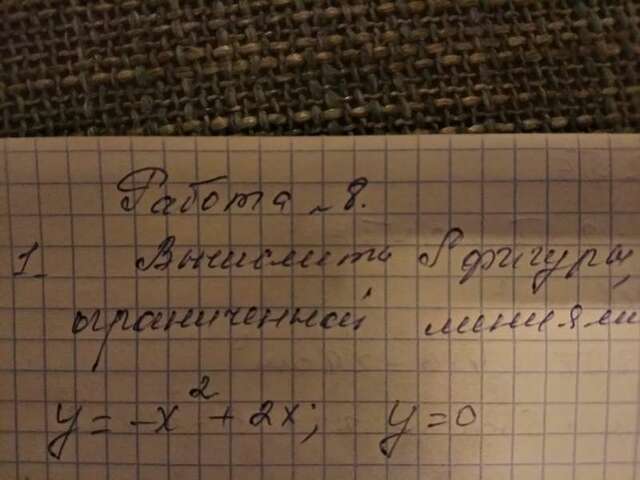 Работа ~ 8.
1. Вычислить S фигуры,
ограниченной линиями
y = -x² + 2x; y = 0